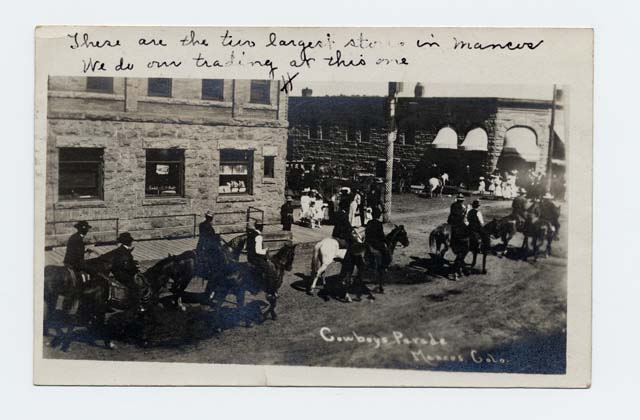 These are the two largest stores in Mancos
We do our trading at this one
X
Cowboys Parade
Mancos Colo.